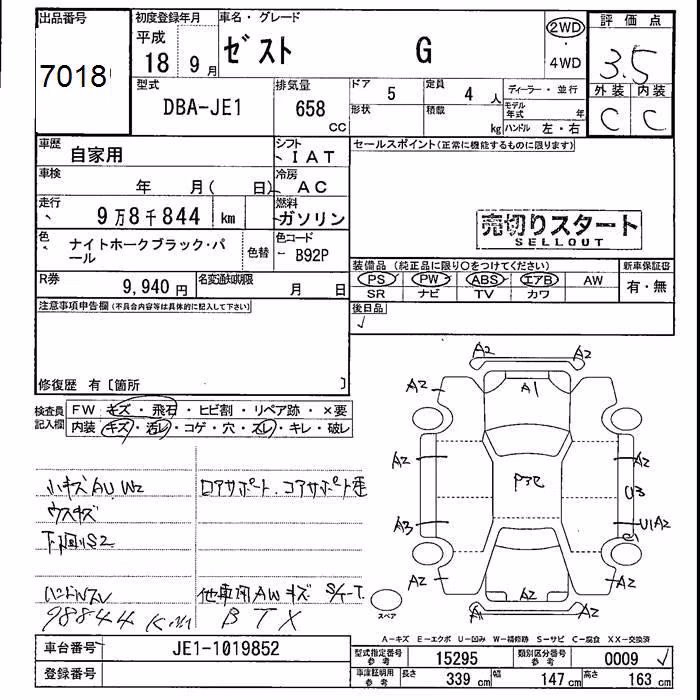 出品番号
7018
初度登録年月
平成
18 9 月
車名・グレード
ゼスト G
2WD
・
4WD
評価点
3.5
外装 内装
C C
型式
DBA-JE1
排気量
658
CC
ドア 5
定員 4 人
形状
積載 kg
ディーラー・並行
モデル年式 年
ハンドル 左・右
車歴
自家用
シフト
IAT
セールスポイント(正常に機能するものに限ります)
車検
年 月( 日)
冷房
AC
走行
9万8千844 km
燃料
ガソリン
売切りスタート
SELLOUT
色
ナイトホークブラック・パール
色替
色コード
B92P
装備品 (純正品に限り〇をつけてください)
新車保証書
PS PW ABS エアB AW
有・無
SR ナビ TV カワ
R券
9,940 円
名変通知期限
月 日
後日品
注意事項申告欄 (不具合内容等は具体的に記入して下さい)
修復歴 有 [箇所 ]
検査員
記入欄
FW キズ・飛石・ヒビ割・リペア跡・×要
内装 キズ・汚レ・コゲ・穴・スレ・キレ・破レ
小キズAU W2
ウスキズ
下回りS2
コアサポート、コアサポート歪
ハンドルスレ
他車用AWキズ
98844
A2 A2
A2 A1 A2
A2 A2
P3
U3
A3 U1A2
A2 A2 A2
A2 A2
スペア
A-キズ E-エクボ U-凹み W-補修跡 S-サビ C-腐食 XX-交換済
車台番号
JE1-1019852
登録番号
型式指定番号
参考
15295
類別区分番号
参考
0009
車庫証明用
参考
長さ 339 cm 幅 147 cm 高さ 163 cm